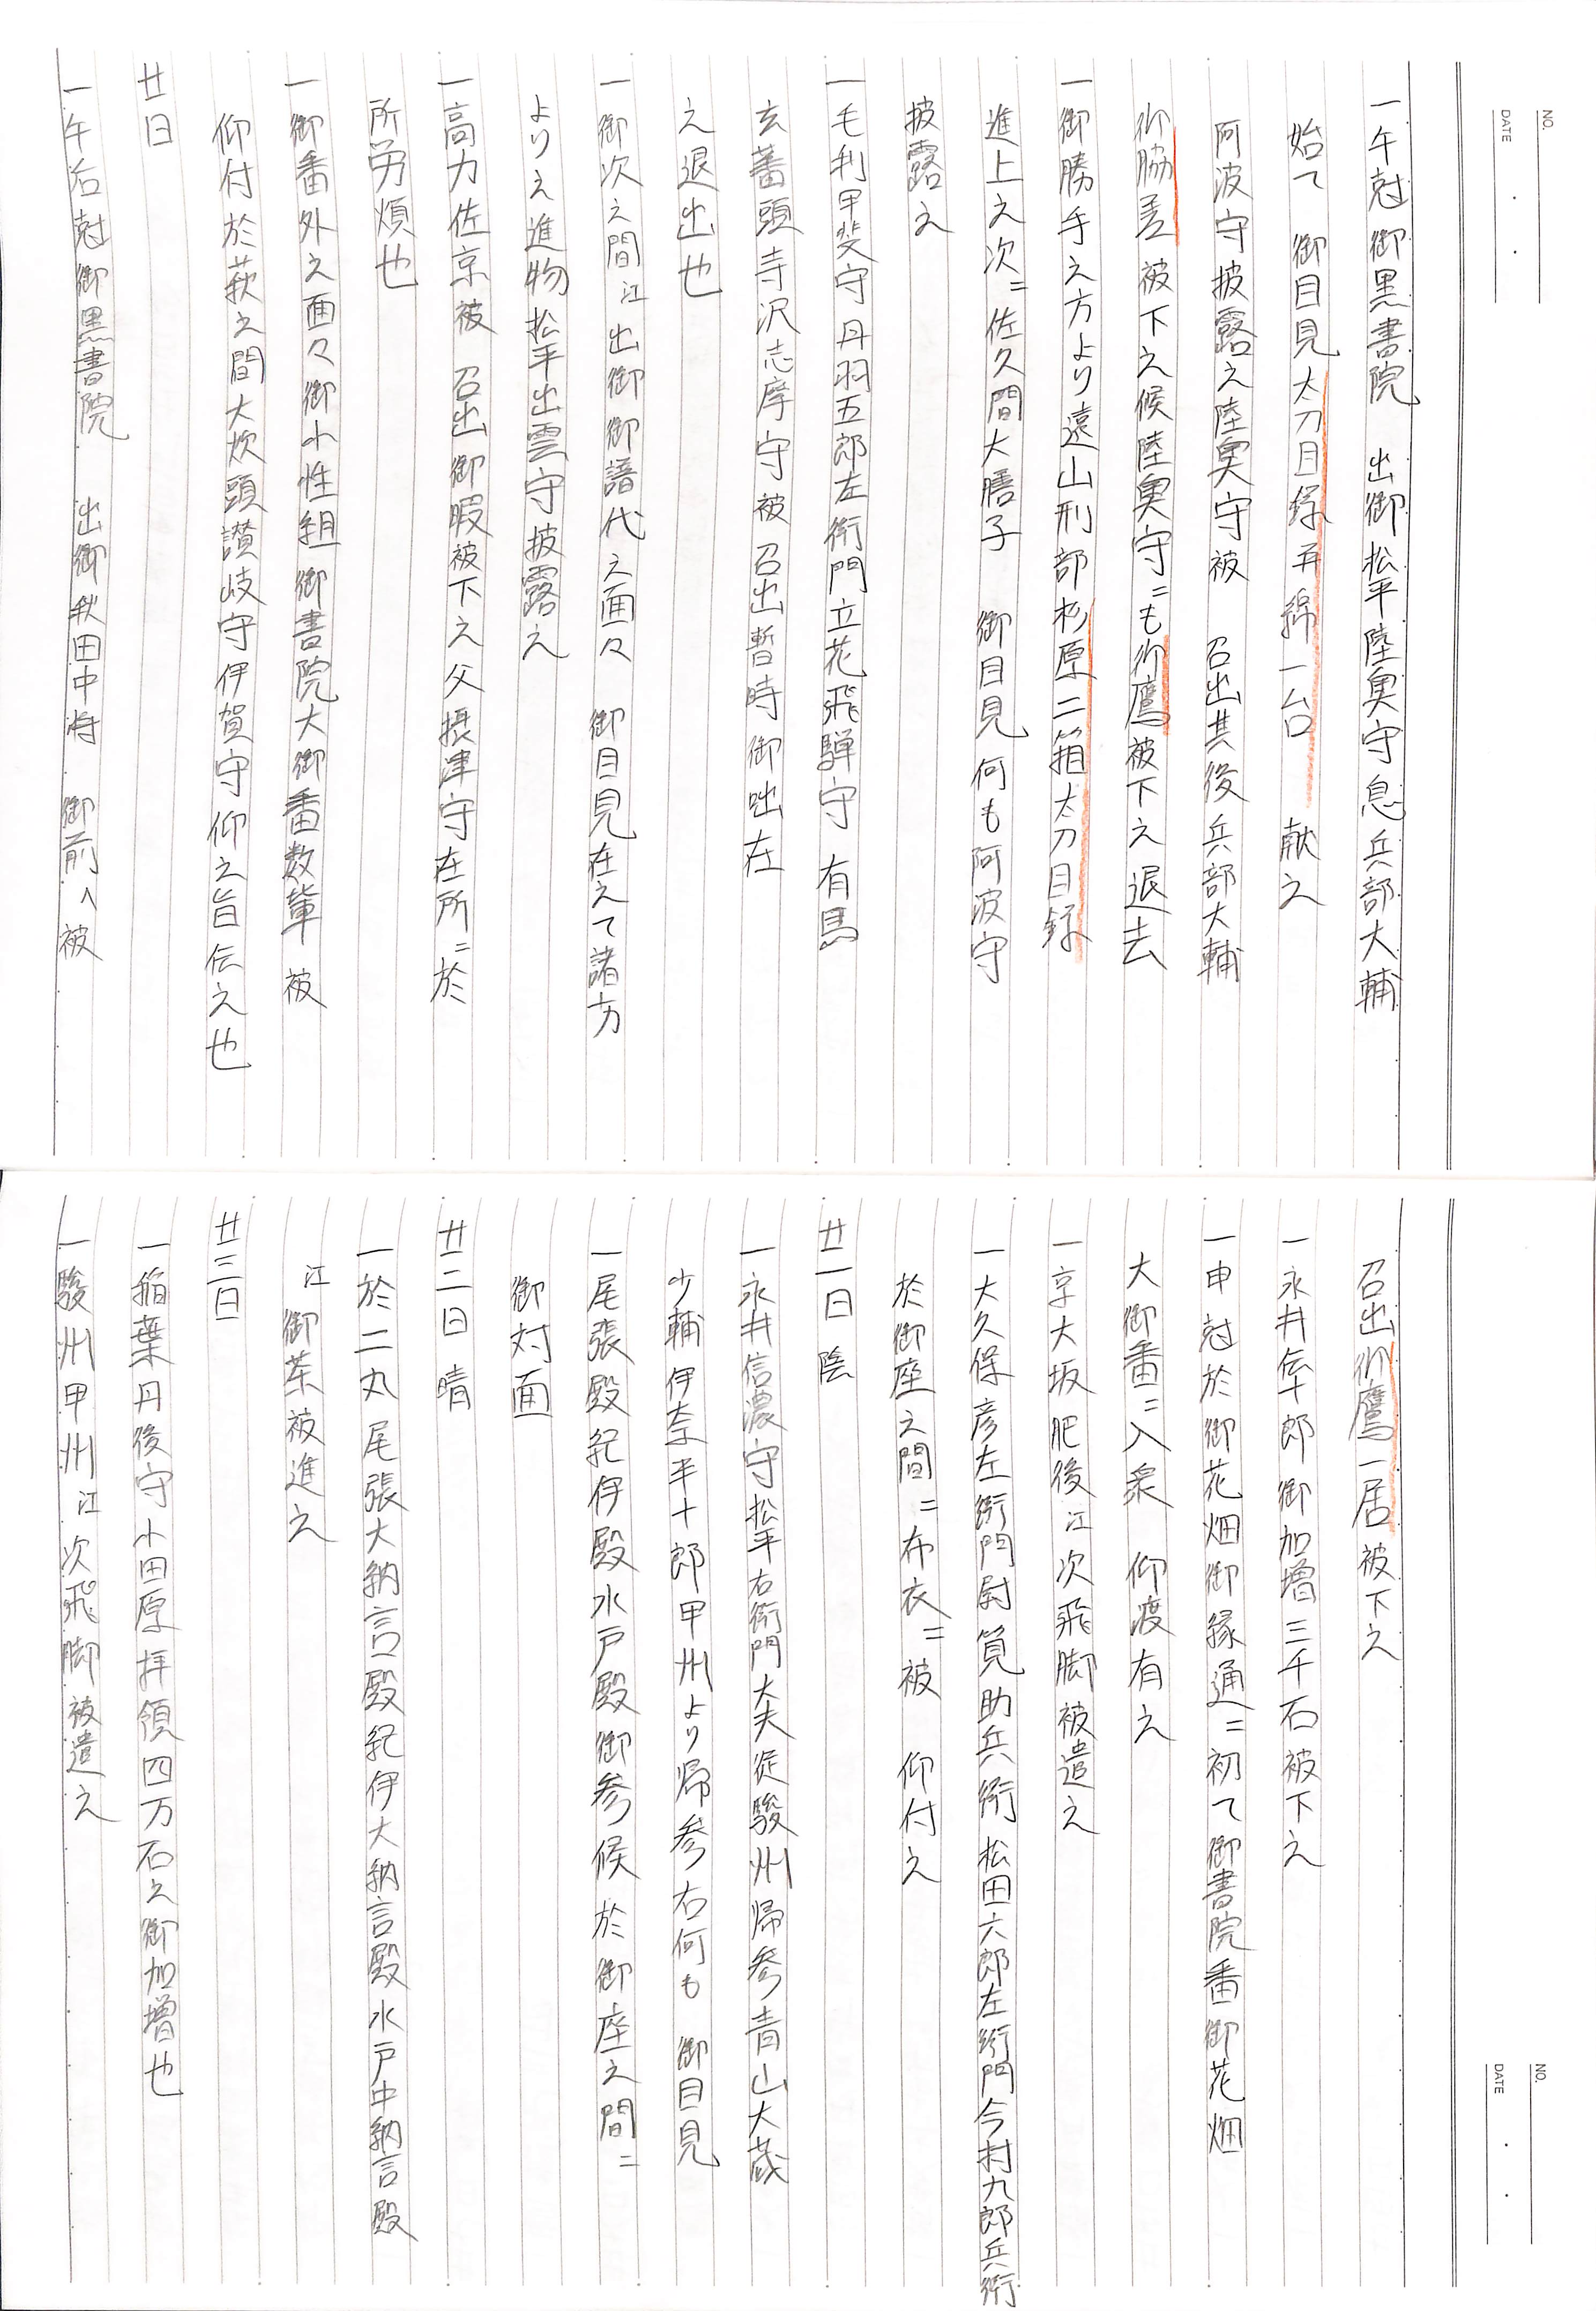 NO.
DATE
一午尅御黒書院　出御松平陸奥守息兵部大輔
始て　御目見太刀目録并綿一台　献之
阿波守披露之陸奥守被　召出其後兵部大輔
御脇差被下之候陸奥守ニも御鷹被下之退去
一御勝手之方より遠山刑部杉原二箱太刀目録
進上之次ニ佐久間大膳子　御目見何も阿波守
披露之
一毛利甲斐守丹羽五郎左衛門立花飛騨守有馬
玄蕃頭寺沢志摩守被　召出暫時御咄在
之退出也
一御次之間江出御御譜代之面々　御目見在之て諸方
より之進物松平出雲守披露之
一高力佐京被　召出御暇被下之父摂津守在所ニ於
所労煩也
一御番外之面々御小性組御書院大御番数輩　被
仰付於萩之間大炊頭讃岐守伊賀守仰之旨伝之也
廿日
一午后尅御黒書院　出御秋田中将　御前へ被
NO.
DATE
召出御鷹一居被下之
一永井伝十郎御加増三千石被下之
一申尅於御花畑御縁通ニ初て御書院番御花畑
大御番ニ入衆　仰渡有之
一京大坂肥後江次飛脚被遣之
一大久保彦左衛門尉筧助兵衛松田六郎左衛門今村九郎兵衛
於御座之間ニ布衣ニ被　仰付之
廿一日　陰
一永井信濃守松平右衛門大夫従駿州帰参青山大蔵
少輔伊奈半十郎甲州より帰参右何も　御目見
一尾張殿紀伊殿水戸殿御参候於御座之間ニ
御対面
廿二日　晴
一於二丸尾張大納言殿紀伊大納言殿水戸中納言殿
江御茶被進之
廿三日
一稲葉丹後守小田原拝領四万石之御加増也
一駿州甲州江次飛脚被遣之